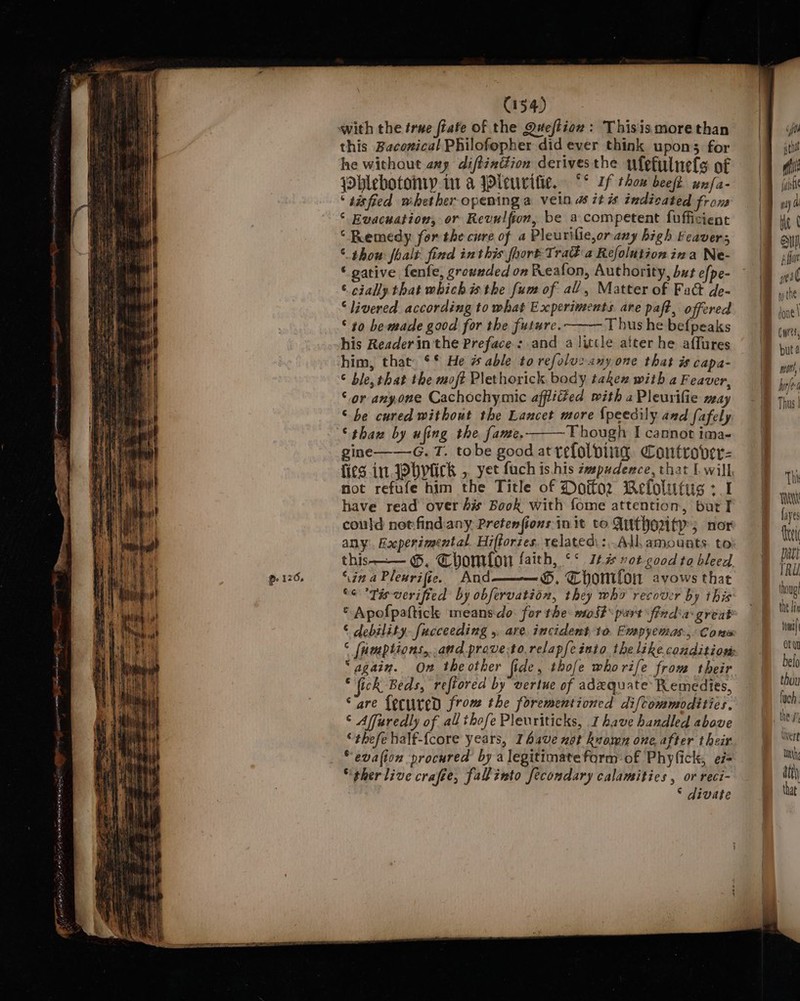 (154)
with the true ſtate of the Queſtion : This is more than
this Baconical Philoſopher did ever think upon; for
he without any diſtinction derives the uſefulneſs of
Phlebotomy in a Pleuriſie. “ If thou beeſt unſa-
‘ tisfied whether opening a vein as it is indicated from
‘ Evacuation, or Revulſion, be a competent ſufficient
‘ Remedy for the cure of a Pleuriſie, or any high Feaver;
‘ thou ſhalt find in this ſhort Tract a Reſolution in a Ne-
‘ gative ſenſe, grounded on Reaſon, Authority, but eſpe-
‘ cially that which is the ſum of all, Matter of Fact de-
‘ livered according to what Experiments are paſt, offered
‘ to be made good for the future.——Thus he beſpeaks
his Reader in the Preface : and a little after he aſſures
him, that “ He is able to reſolve any one that is capa-
‘ ble, that the moſt Plethorick body taken with a Feaver,
‘ or any one Cachochymic afflicted with a Pleuriſie may
‘ be cured without the Lancet more ſpeedily and ſafely
‘ than by uſing the ſame.——Though I cannot ima-
gine——G. T. to be good at reſolving Controver-
ſies in Phyſick , yet ſuch is his impudence, that I will
not refuſe him the Title of Doctor Reſolutus : I
have read over his Book with ſome attention, but I
could not find any Pretenſions in it to Authority ; nor
any Experimental Hiſtories related : All amounts to
this——G. Thomſon ſaith, “ It is not good to bleed
p. 126. ‘ in a Pleuriſie. And——G. Thomſon avows that
“ 'Tis verified by obſervation, they who recover by this
‘ Apoſpaſtick means do for the moſt part find a great
‘ debility ſucceeding , are incident to Empyemas , Con-
‘ ſumptions, and prove to relapſe into the like condition
‘ again. On the other ſide, thoſe who riſe from their
‘ ſick Beds, reſtored by vertue of adæquate Remedies,
‘ are ſecured from the forementioned diſcommodities.
‘ Aſſuredly of all thoſe Pleuriticks, I have handled above
‘ theſe half-ſcore years, I have not known one after their
‘ evaſion procured by a legitimate form of Phyſick, ei-
‘ ther live craſie, fall into ſecondary calamities , or reci-
‘ divate